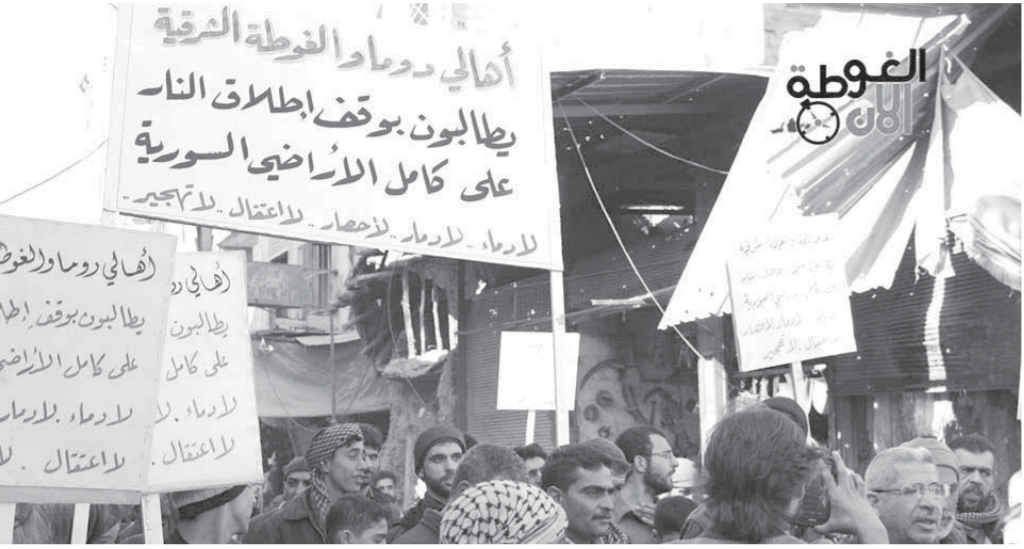 أهالي دوما والغوطة الشرقية
يطالبون بوقف إطلاق النار
على كامل الأراضي السورية
لا دماء - لا دمار - لا حصار - لا اعتقال - لا تهجير -
الغوطة
الآن
أهالي دوما والغوط
يطالبون بوقف إطلا
على كامل الأراضي
لا دماء . لا دمار
لا اعتقال . لا
أهالي دو
يطالبون
على كامل
لا دماء . لا
لا اعتقال .